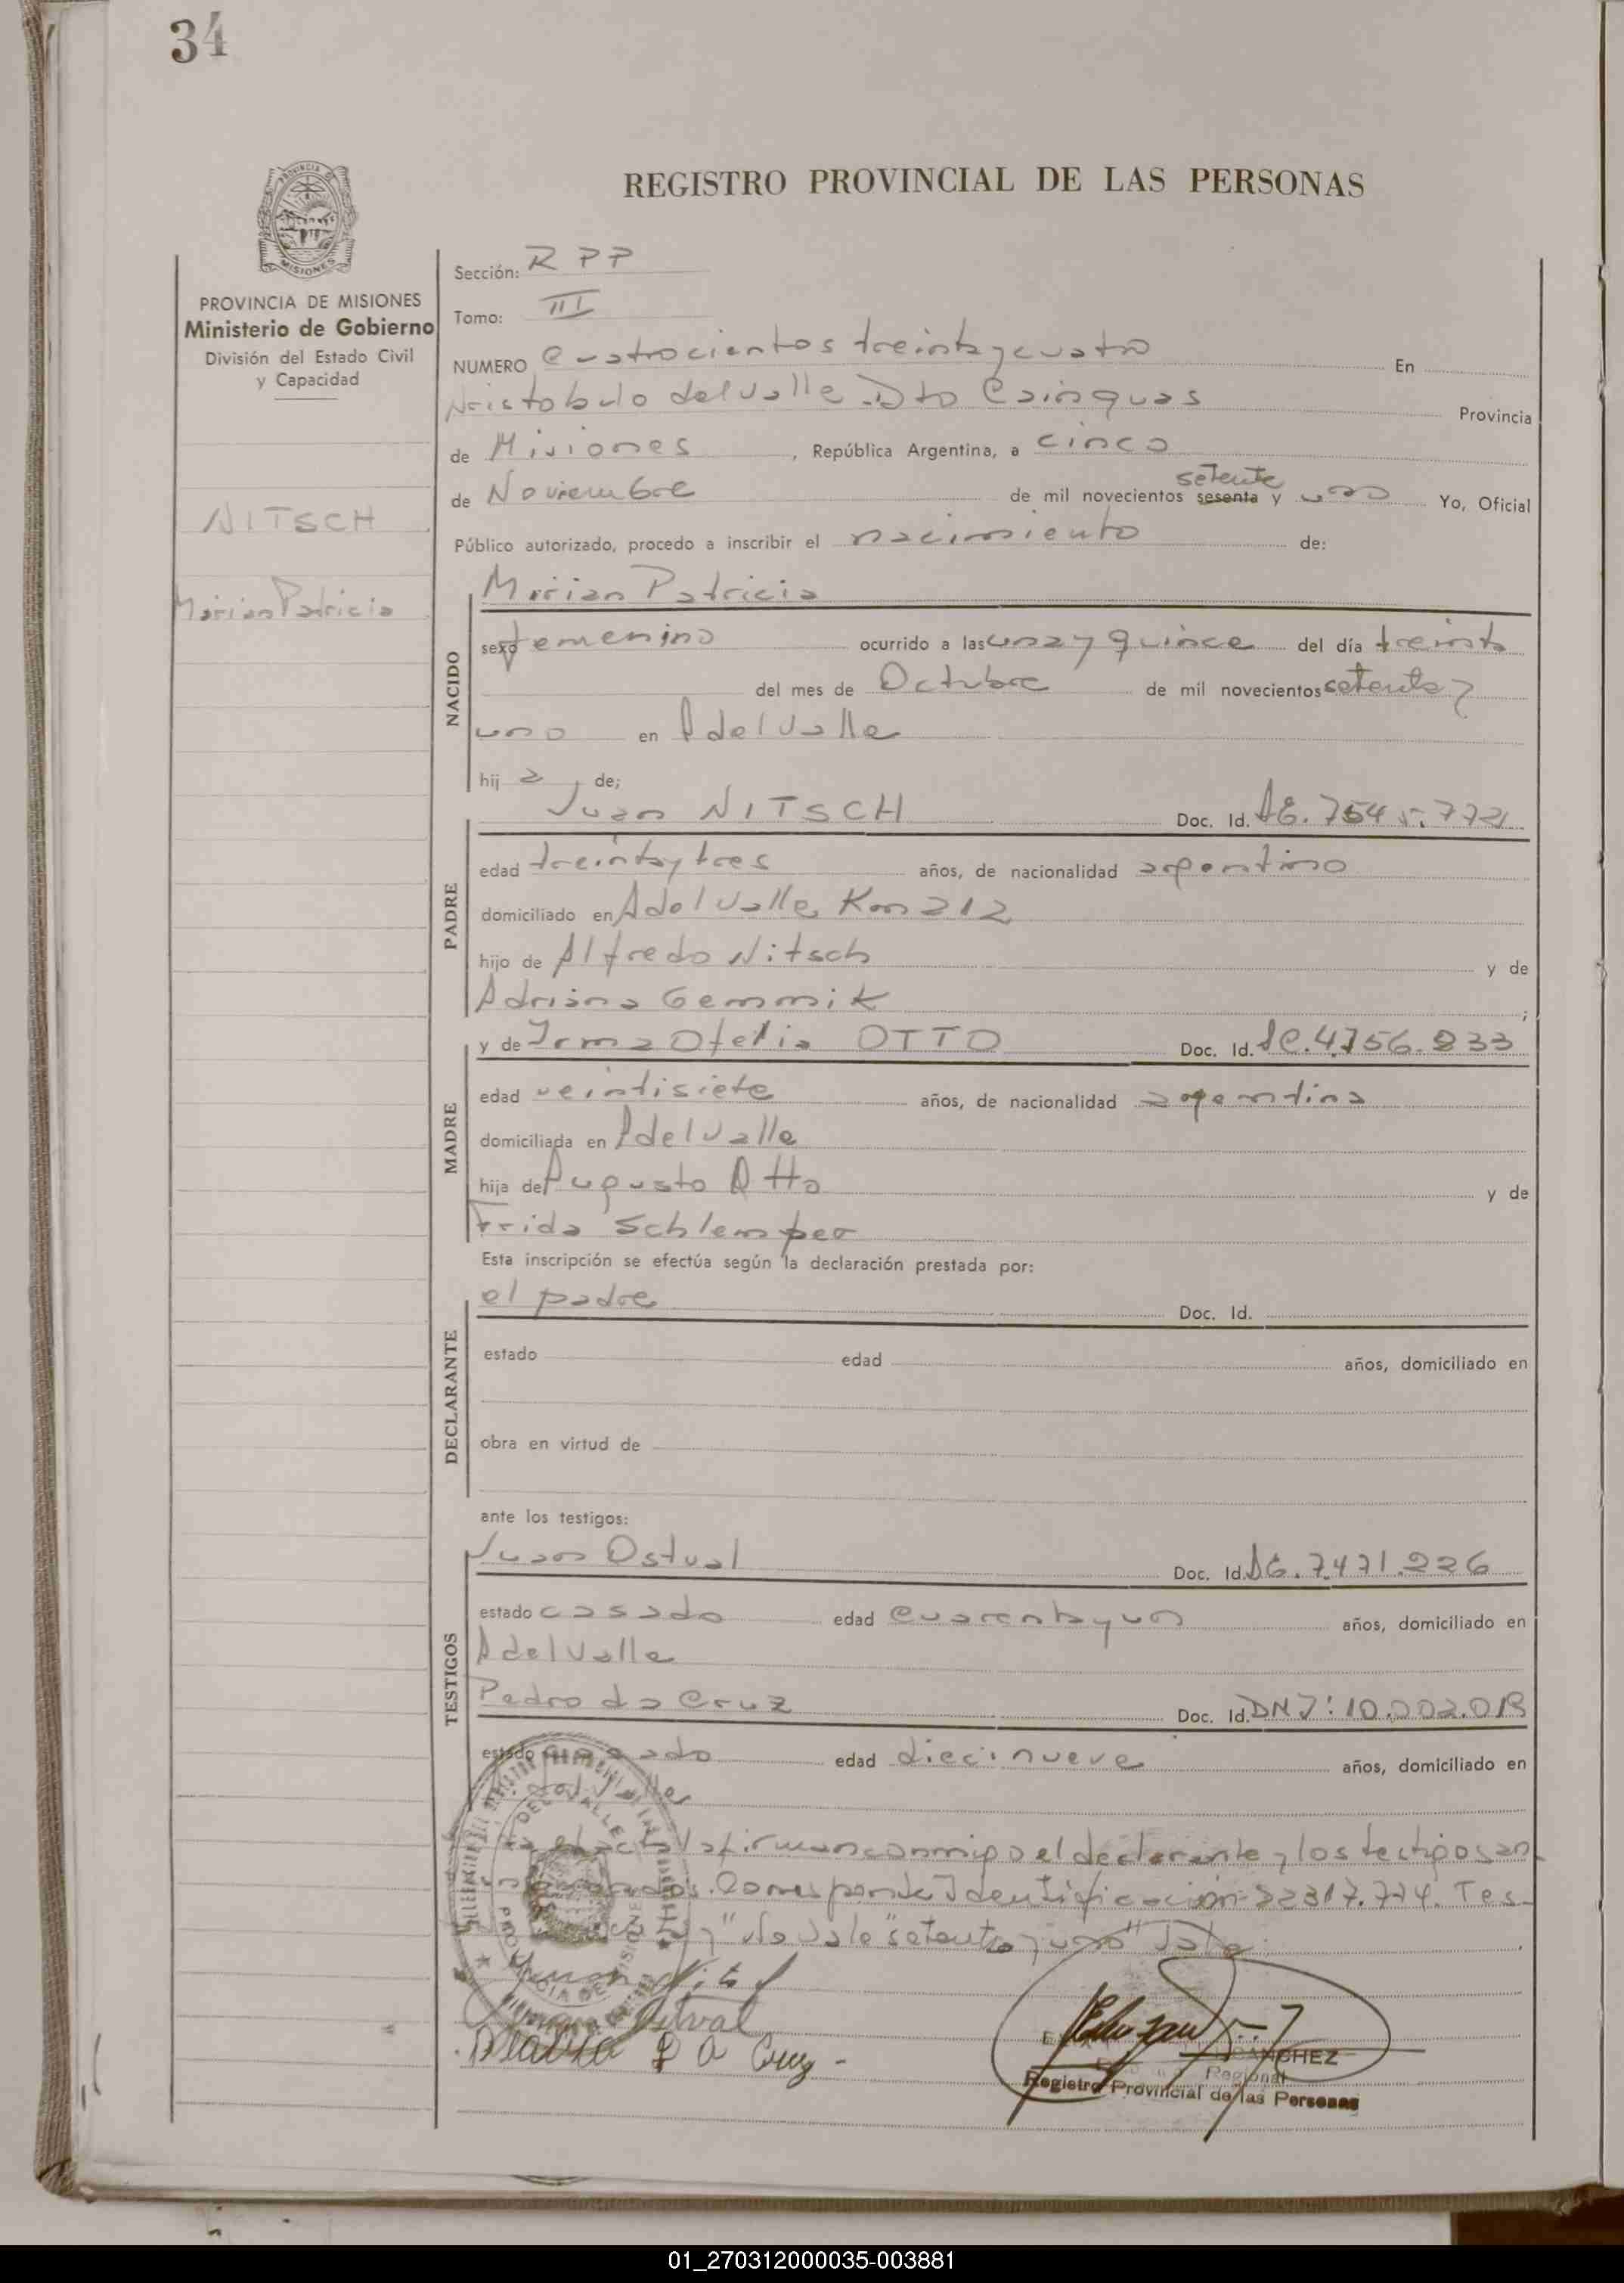 34
PROVINCIA DE MISIONES
Ministerio de Gobierno
División del Estado Civil
y Capacidad
NITSCH
Mirian Patricia
REGISTRO PROVINCIAL DE LAS PERSONAS
Sección: R P P
Tomo: III
NUMERO Cuatrocientos treinta y cuatro En
Aristobulo del Valle Dto Cainguas Provincia
de Misiones, República Argentina, a cinco
setenta
de Noviembre de mil novecientos sesenta y uno Yo, Oficial
Público autorizado, procedo a inscribir el nacimiento de:
NACIDO
Mirian Patricia
sexo femenino ocurrido a las una y quince del día treinta
del mes de Octubre de mil novecientos setenta y
uno en A del Valle
hij a, de;
PADRE
Juan NITSCH Doc. Id.
edad treinta y tres años, de nacionalidad argentino
domiciliado en A del Valle Km 212
hijo de Alfredo Nitsch y de
Adriana Gemmik;
MADRE
y de Irma Ofelia OTTO Doc. Id.
edad veintisiete años, de nacionalidad argentina
domiciliada en A del Valle
hija de Augusto Otto y de
Frida Schlemper
Esta inscripción se efectúa según la declaración prestada por:
DECLARANTE
el padre Doc. Id.
estado edad años, domiciliado en
obra en virtud de
ante los testigos:
TESTIGOS
Juan Ostual Doc. Id. 7.471.226
estado casado edad cuarenta y un años, domiciliado en
A del Valle
Pedro da Cruz Doc. Id. DNI: 10.002.018
estado casado edad diecinueve años, domiciliado en
A del Valle
el acta la firman conmigo el declarante y los testigos an
Corresponde Identificación 22317.774. Tes-
y "No Vale" setenta y uno" Vale.
Juan
da Cruz -
SANCHEZ
Regional
Registro Provincial de las Personas
01_270312000035-003881